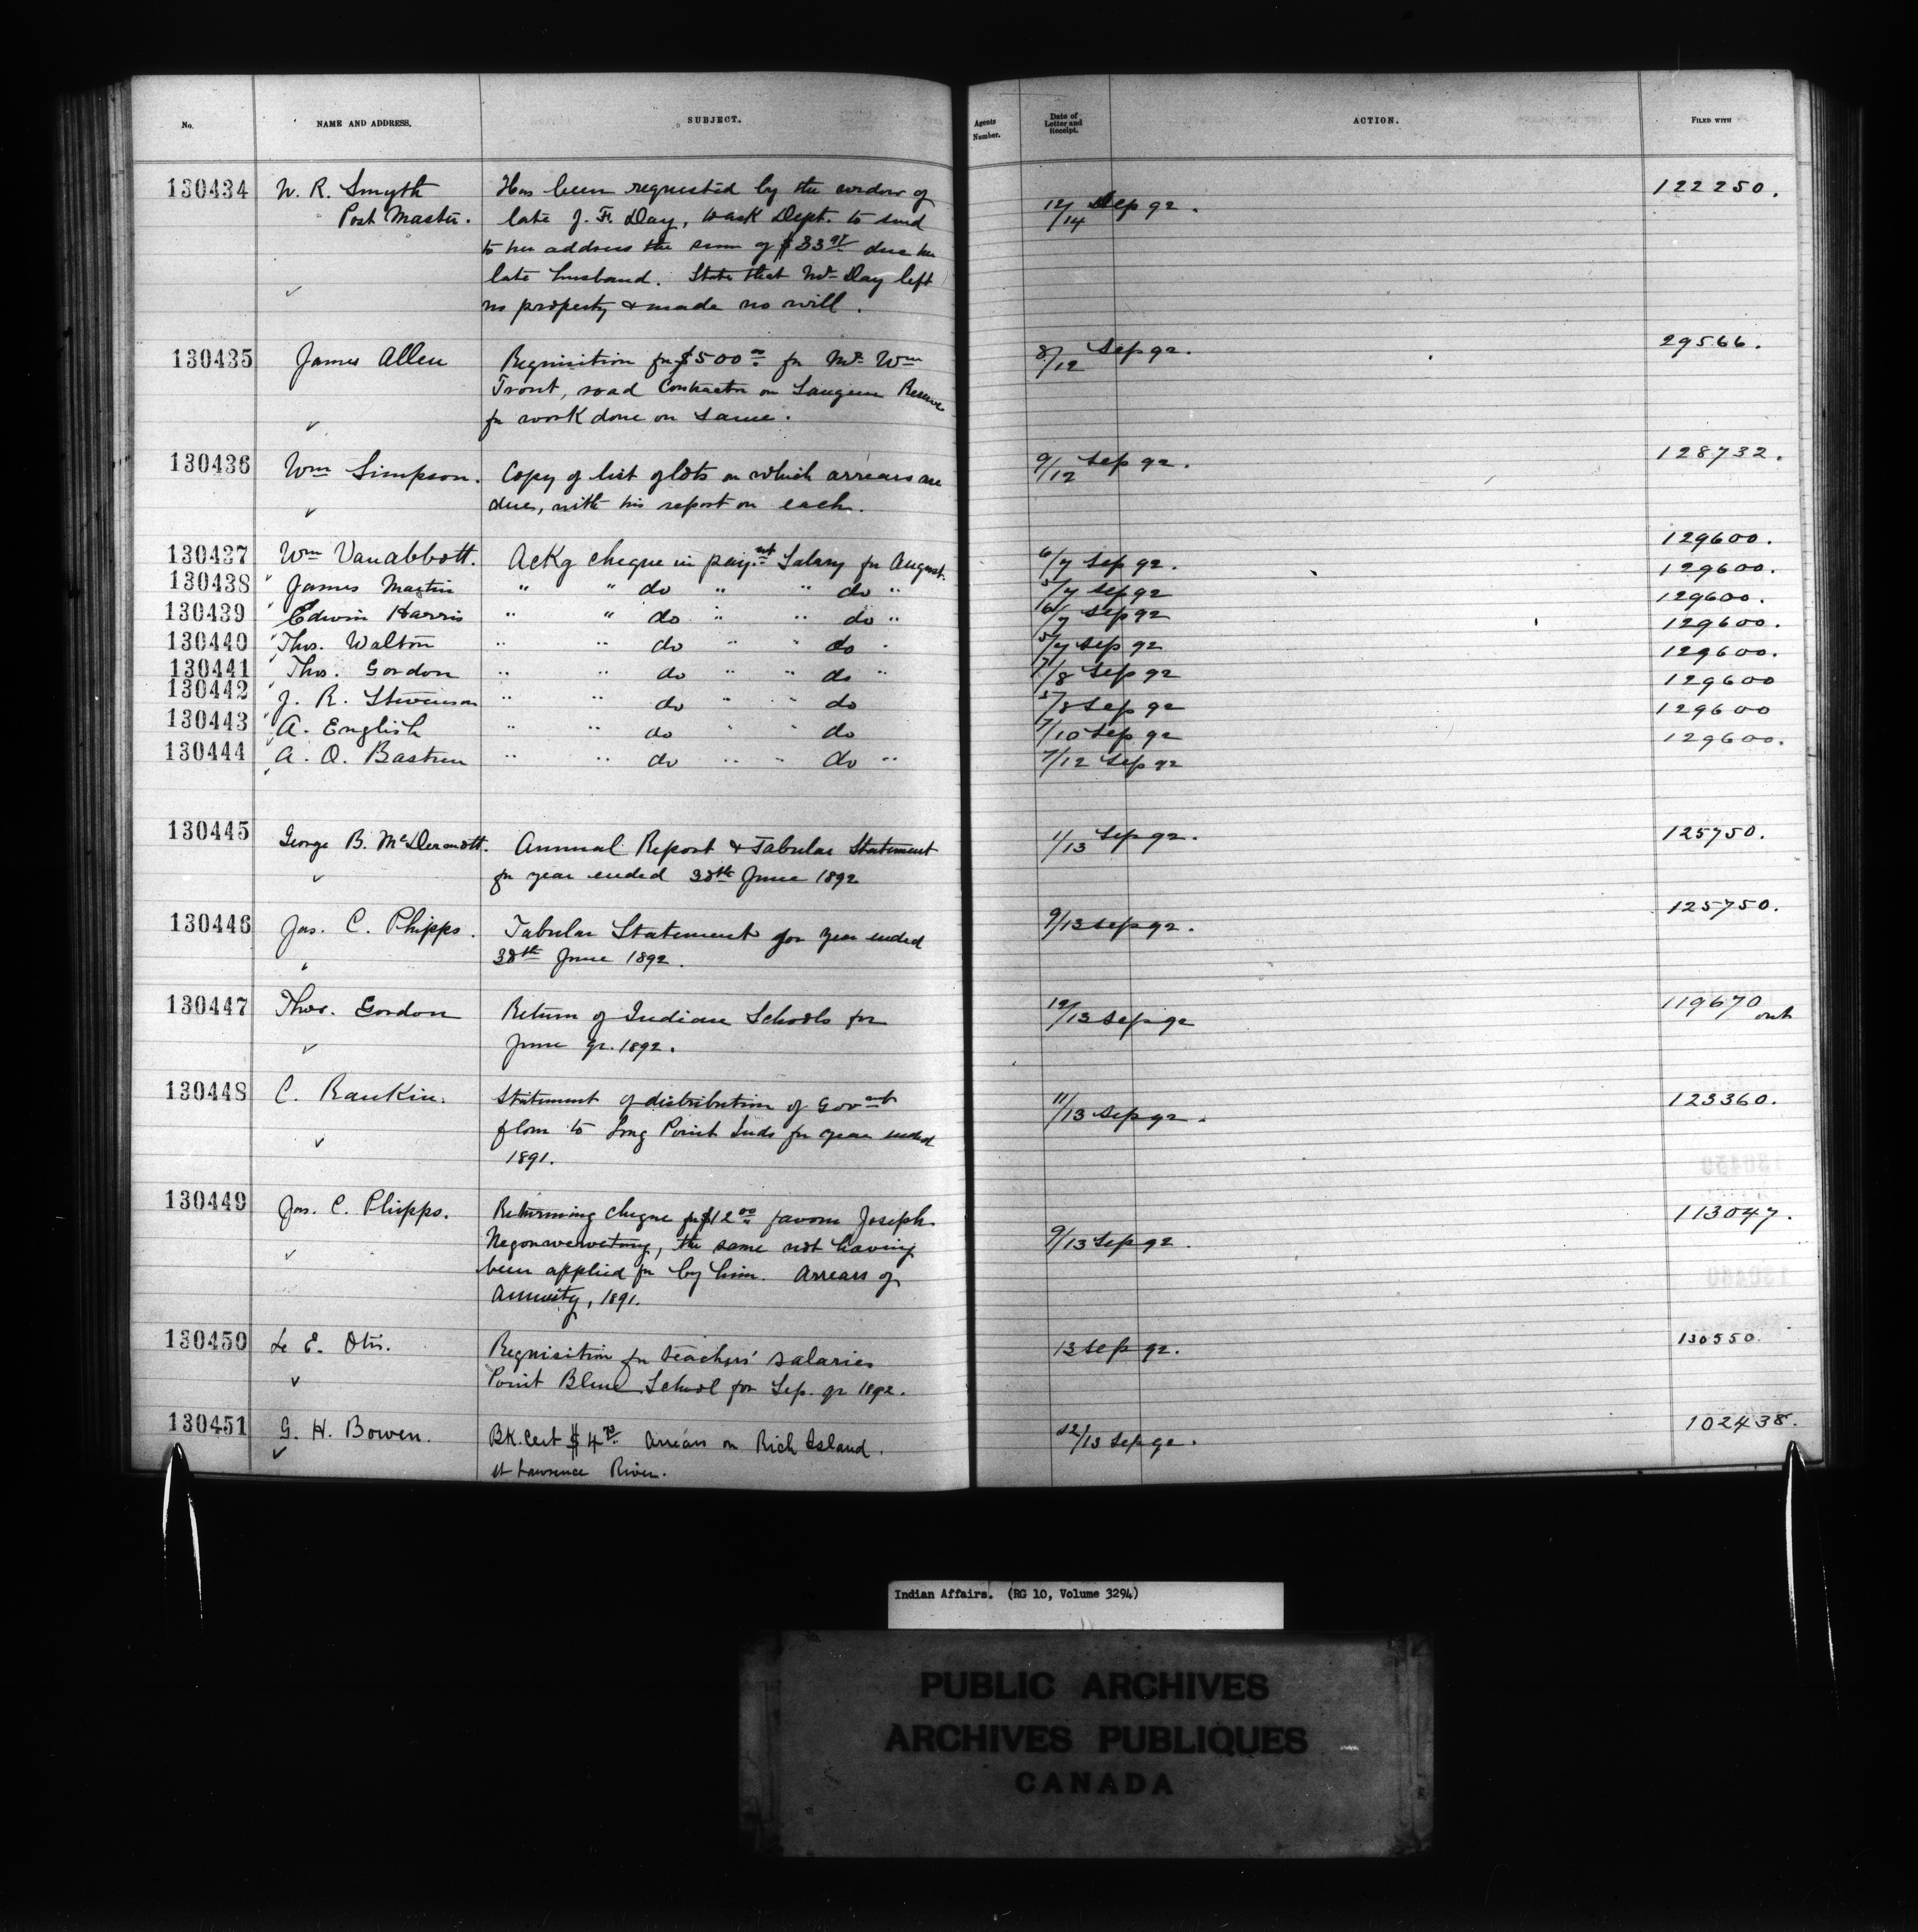 No.
NAME AND ADDRESS.
SUBJECT.
Agents Number.
Date of Letter and Receipt.
ACTION.
FILED WITH
130434 W. R. Smyth Has been requested by the widow of 12/14 Sep 92. 122250.
Post Master. late J. F. Day, to ask Dept. to send
to her address the sum of $33 due her
late husband. States that Mr Day left
no property & made no will.
130435 James Allen Requisition for $500 00 for Mr. Wm 8/12 Sep 92. 29566.
Trout, road Contractor on Saugeen Reserve
for work done on same.
130436 Wm Simpson. Copy of list of lots on which arrears are 9/12 Sep 92. 128732.
due, with his report on each.
130437 Wm Vanabbott. Ackg cheque in paymt Salary for August. 6/7 Sep 92. 129600.
130438 James Martin " " do " " do " 5/7 Sep 92 129600.
130439 Edwin Harris " " do " " do " 6/7 Sep 92 129600.
130440 Thos. Walton " " do " " do " 5/7 Sep 92 129600.
130441 Thos. Gordon " " do " " do " 7/8 Sep 92 129600.
130442 J. R. Stevenson " " do " " do 5/8 Sep 92 129600
130443 A. English " " do " " do 7/10 Sep 92 129600
130444 A. O. Bastien " " do " " do " 7/12 Sep 92 129600.
130445 George B. McDermott. Annual Report & Tabular Statement 1/13 Sep 92. 125750.
for year ended 30th June 1892
130446 Jas. C. Phipps. Tabular Statement for year ended 9/13 Sep 92. 125750.
30th June 1892.
130447 Thos. Gordon Return of Indian Schools for 12/13 Sep 92 119670
June qr. 1892. out
130448 C. Rankin. Statement of distribution of Govmt 11/13 Sep 92. 123360.
flour to Long Point Inds for year ended
1891.
130449 Jas. C. Phipps. Returning cheque for $12 00 favour Joseph 9/13 Sep 92. 113047.
Negonwewetung, the same not having
been applied for by him. Arrears of
Annuity, 1891.
130450 L. E. Otis. Requisition for teachers' salaries 13 Sep 92. 130550.
Point Bleue School for Sep. qr 1892.
130451 G. H. Bowen. Bk. Cert $4 Arrears on Rich Island. 12/13 Sep 92. 102438.
St Lawrence River.
Indian Affairs. (RG 10, Volume 3294)
PUBLIC ARCHIVES
ARCHIVES PUBLIQUES
CANADA